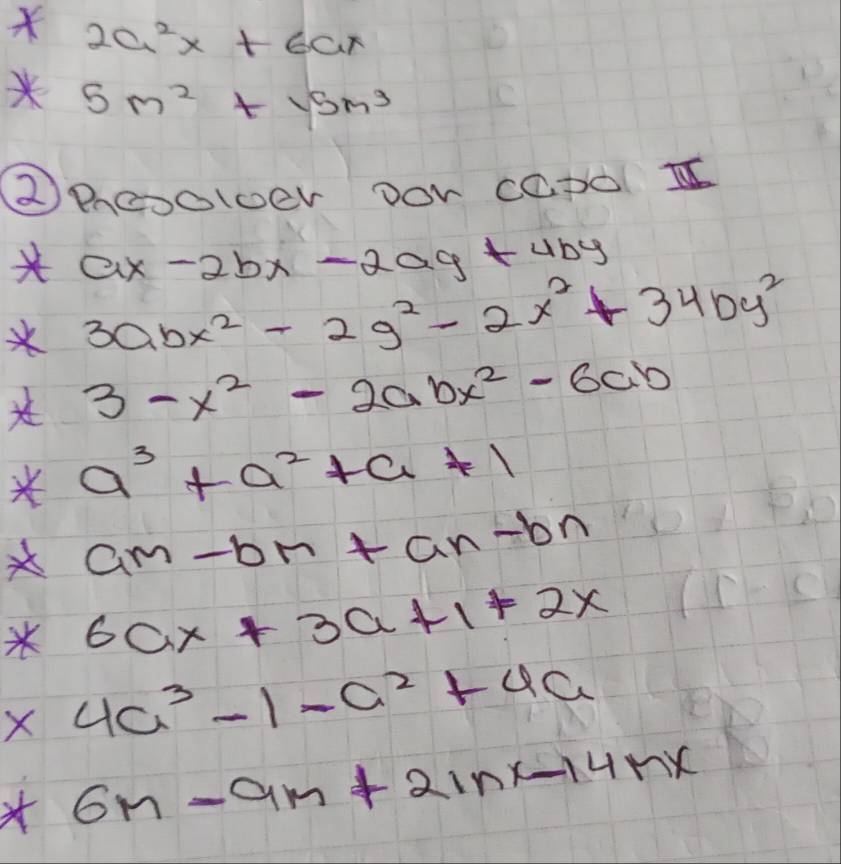 * 2a²x + 6ax
* 5m² + 15m³
② Resolver por caso II
* ax - 2bx - 2ay + 4by
* 3abx² - 2y² - 2x² + 34by²
* 3 - x² - 2abx² - 6ab
* a³ + a² + a + 1
* am - bm + an - bn
* 6ax + 3a + 1 + 2x
x 4a³ - 1 - a² + 4a
* 6m - 9m + 21nx - 14mx